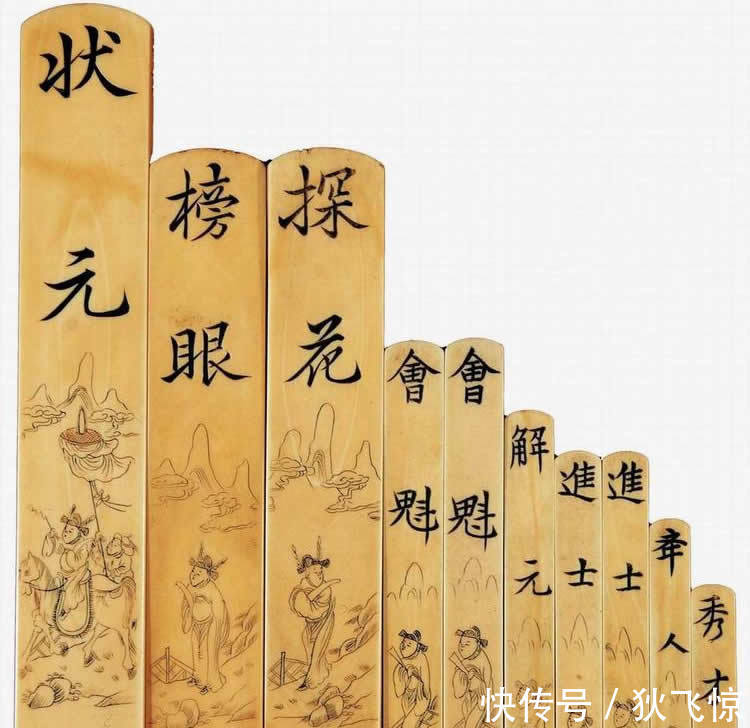 状元
榜眼
探花
會魁
會魁
解元
進士
進士
举人
秀才
快传号 / 狄飞惊